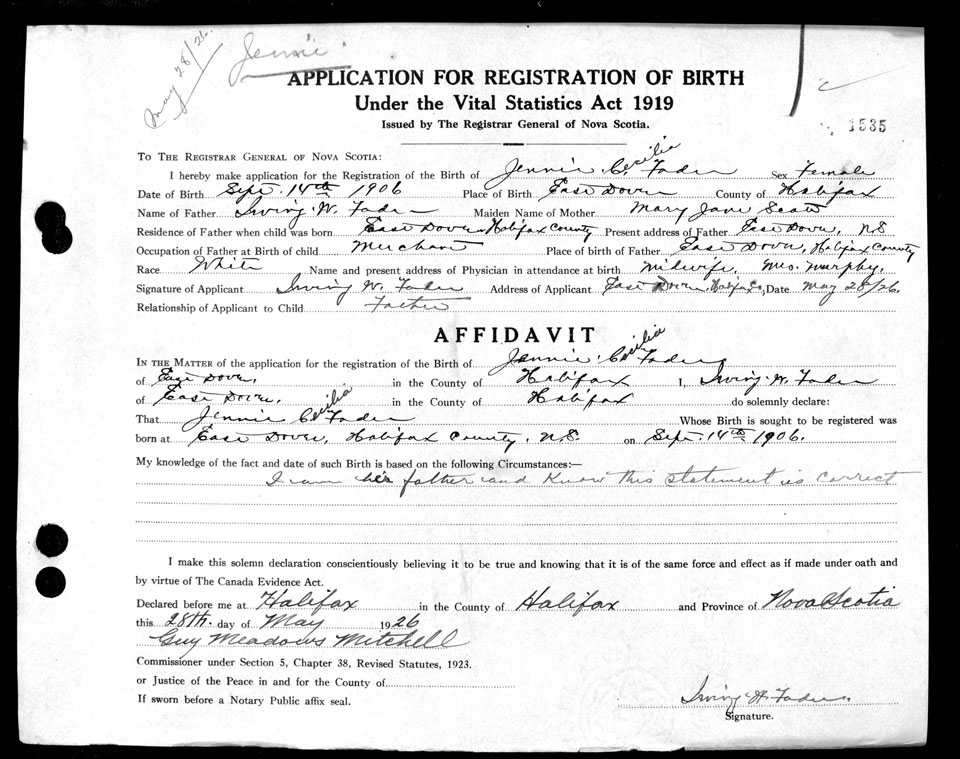 May 28/26.
Jennie.
APPLICATION FOR REGISTRATION OF BIRTH
Under the Vital Statistics Act 1919
Issued by The Registrar General of Nova Scotia.
1535
TO THE REGISTRAR GENERAL OF NOVA SCOTIA:
I hereby make application for the Registration of the Birth of Jennie Cecilia Fader Sex Female
Date of Birth Sept. 14th 1906 Place of Birth East Dover County of Halifax
Name of Father Irving W. Fader Maiden Name of Mother Mary Jane Scott
Residence of Father when child was born East Dover Halifax County Present address of Father East Dover, N S
Occupation of Father at Birth of child Merchant Place of birth of Father East Dover, Halifax County
Race White Name and present address of Physician in attendance at birth midwife, Mrs. Murphy.
Signature of Applicant Irving W. Fader Address of Applicant East Dover, Halifax Co; Date May 28/26.
Relationship of Applicant to Child Father
AFFIDAVIT
IN THE MATTER of the application for the registration of the Birth of Jennie Cecilia Fader
of East Dover, in the County of Halifax I, Irving W. Fader
of East Dover, in the County of Halifax do solemnly declare:
That Jennie Cecilia Fader Whose Birth is sought to be registered was
born at East Dover, Halifax County, N.S. on Sept. 14th 1906.
My knowledge of the fact and date of such Birth is based on the following Circumstances:—
I am her father and know this statement is correct
I make this solemn declaration conscientiously believing it to be true and knowing that it is of the same force and effect as if made under oath and
by virtue of The Canada Evidence Act.
Declared before me at Halifax in the County of Halifax and Province of Nova Scotia
this 28th. day of May 1926
Guy Meadows Mitchell
Commissioner under Section 5, Chapter 38, Revised Statutes, 1923.
or Justice of the Peace in and for the County of
If sworn before a Notary Public affix seal.
Irving W. Fader
Signature.